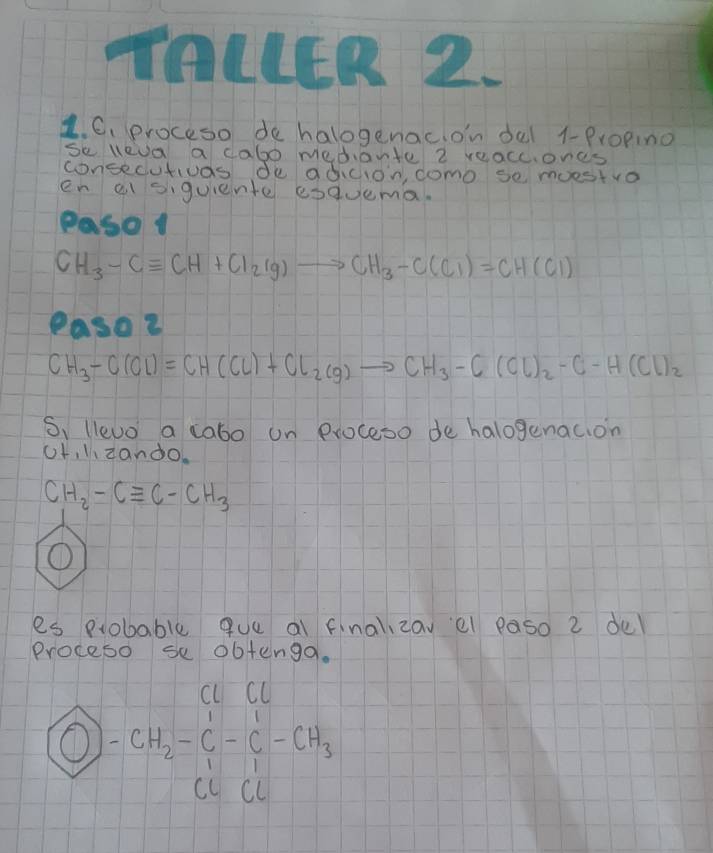 TALLER 2.
1. C. proceso de halogenación del 1-Propino
se lleva a cabo mediante 2 reacciones
consecutivas de adición, como se muestra
en el siguiente esquema.
Paso 1
CH₃-C≡CH + Cl₂(g) → CH₃-C(Cl)=CH(Cl)
Paso 2
CH₃-C(Cl)=CH(Cl)+Cl₂(g) → CH₃-C(Cl)₂-C-H(Cl)₂
Si llevo a cabo un proceso de halogenación
utilizando.
CH₂-C≡C-CH₃
es probable que al finalizar el paso 2 del
proceso se obtenga.
Cl Cl
-CH₂-C-C-CH₃
Cl Cl